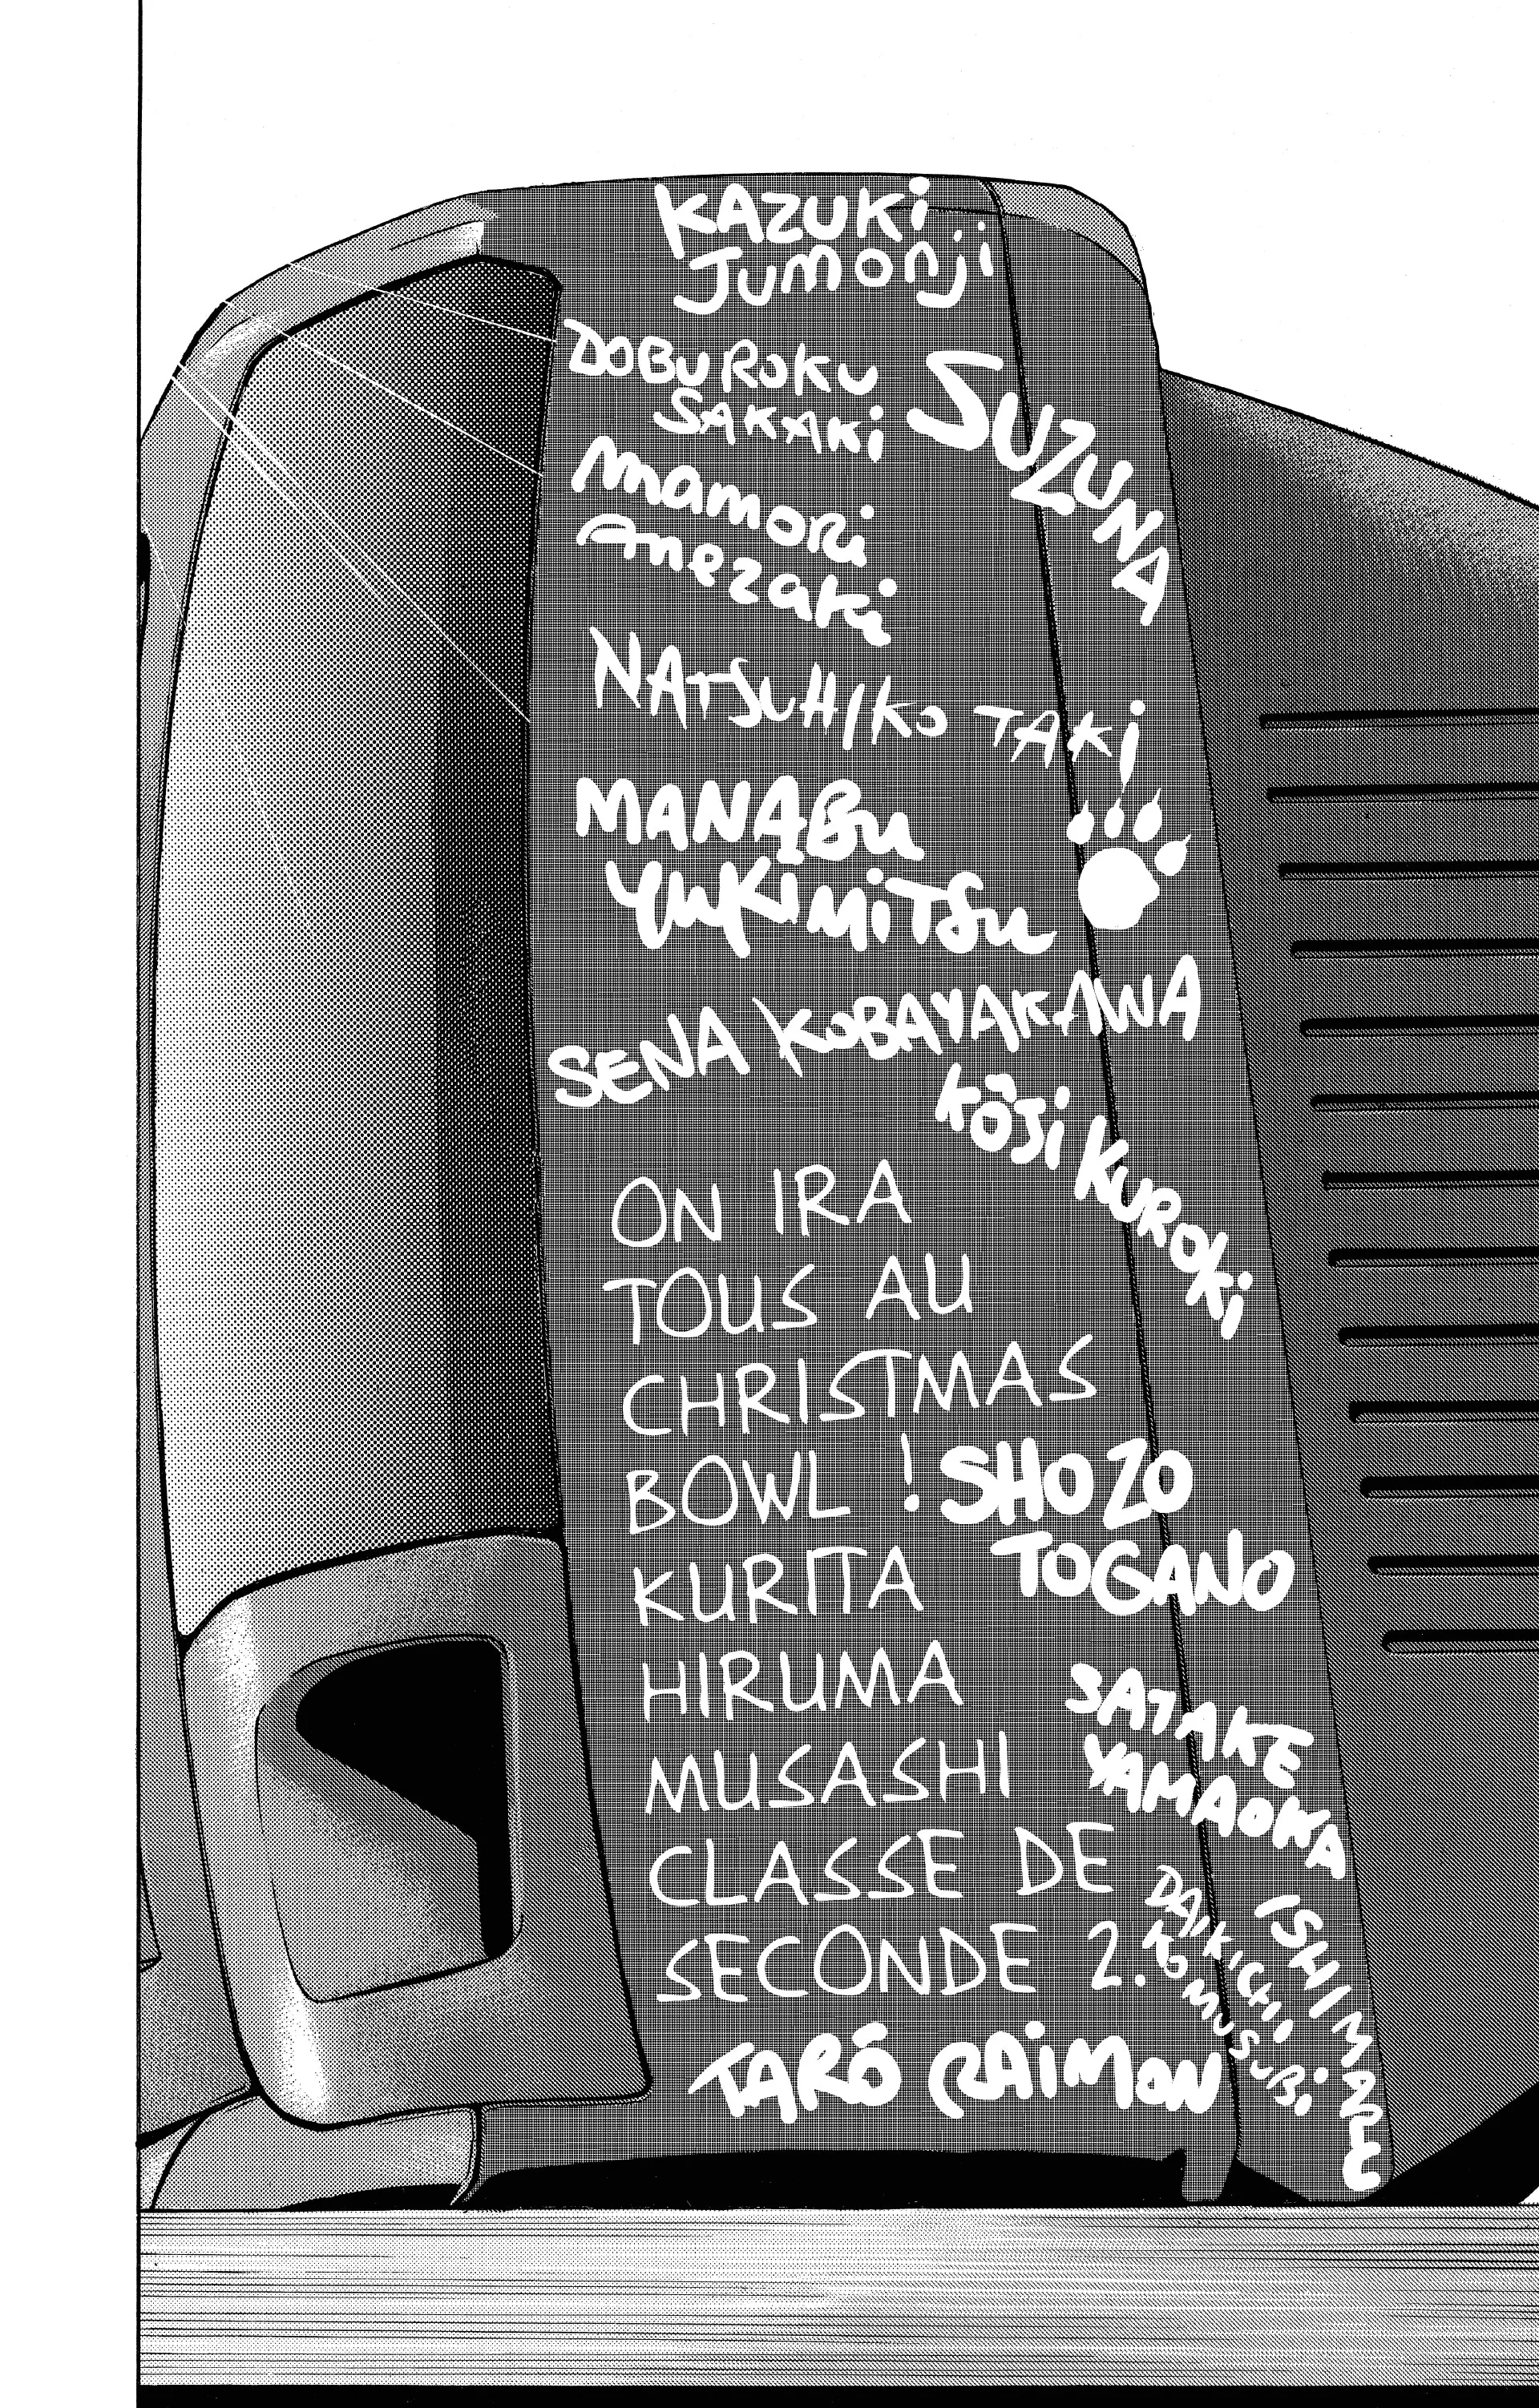 KAZUKI
JUMONJI
DOBUROKU
SAKAKI
SUZUNA
MAMORI
ANEZAKI
NATSUHIKO TAKI
MANABU
YUKIMITSU
SENA KOBAYAKAWA
KÔJI KUROKI
ON IRA
TOUS AU
CHRISTMAS
BOWL !
SHOZO
TOGANO
KURITA
HIRUMA
MUSASHI
SATAKE
YAMAOKA
CLASSE DE
SECONDE 2.
DAIKICHI
KOMUSUBI
ISHIMARU
TARÔ RAIMON